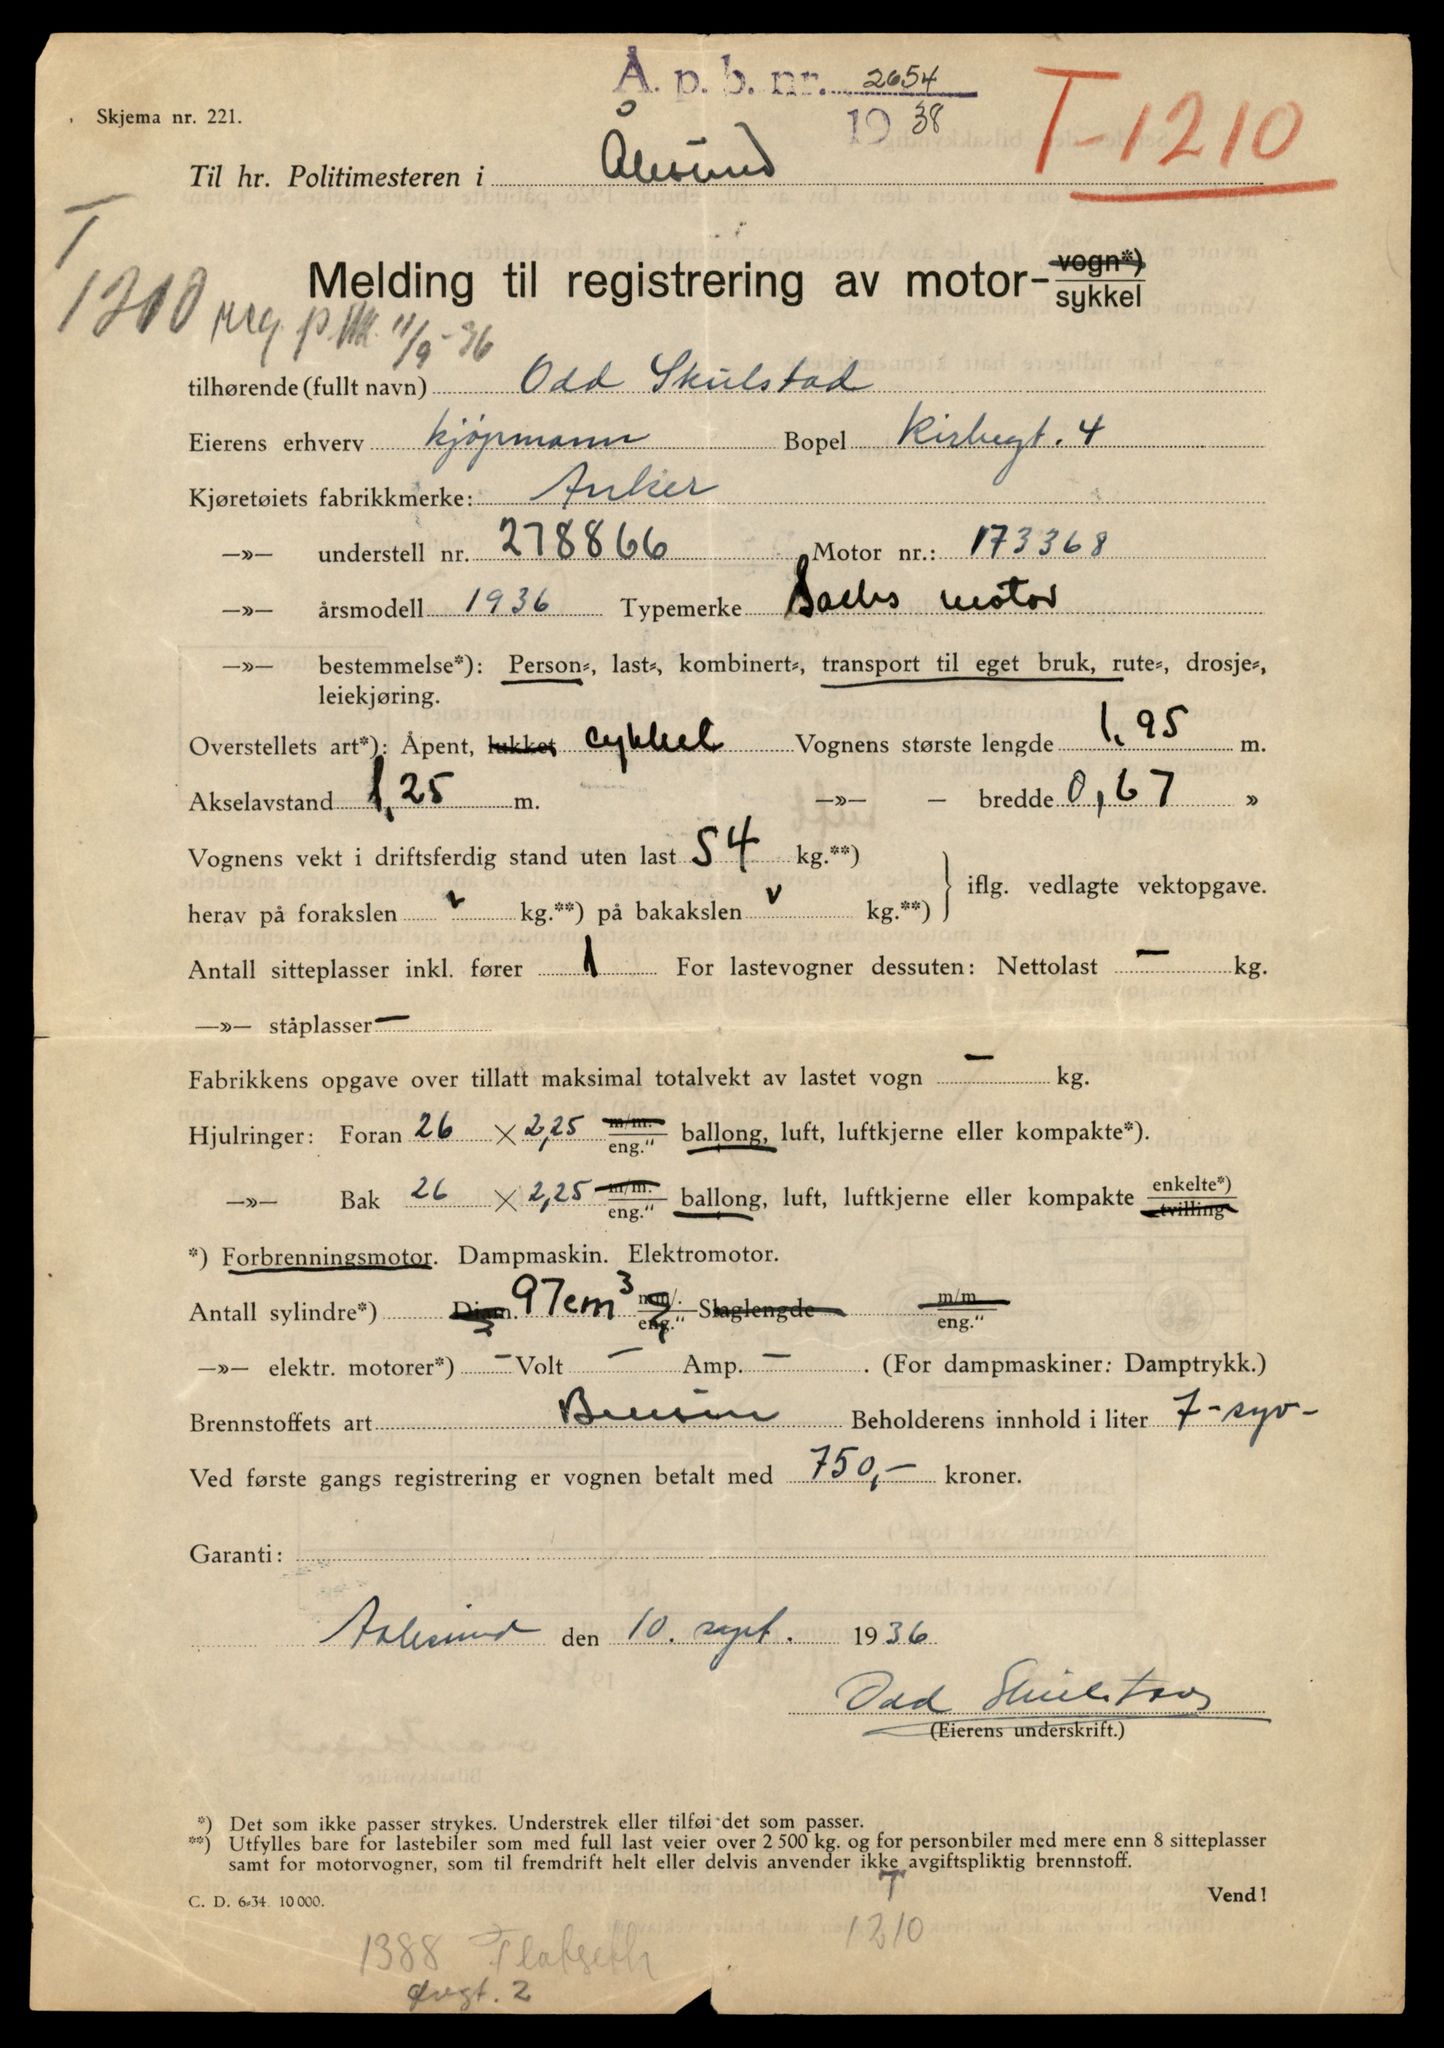 Å. p. b. nr. 2654
19 38
T-1210
Skjema nr. 221.
Til hr. Politimesteren i Ålesund
T
1210 reg. 11/9-36
Melding til registrering av motor- vogn*) sykkel
tilhørende (fullt navn) Odd Skulstad
Eierens erhverv kjøpmann Bopel Kirkegt. 4
Kjøretøiets fabrikkmerke: Anker
—»— understell nr. 278866 Motor nr.: 173368
—»— årsmodell 1936 Typemerke Sachs motor
—»— bestemmelse*): Person-, last-, kombinert-, transport til eget bruk, rute-, drosje-,
leiekjøring.
Overstellets art*): Åpent, lukket cykkel Vognens største lengde 1,95 m.
Akselavstand 1,25 m. —»— — bredde 0,67 »
Vognens vekt i driftsferdig stand uten last 54 kg.**)
herav på forakslen v kg.**) på bakakslen v kg.**) } iflg. vedlagte vektopgave.
Antall sitteplasser inkl. fører 1 For lastevogner dessuten: Nettolast — kg.
—»— ståplasser —
Fabrikkens opgave over tillatt maksimal totalvekt av lastet vogn — kg.
Hjulringer: Foran 26 × 2,25 m/m. eng." ballong, luft, luftkjerne eller kompakte*).
—»— Bak 26 × 2,25 m/m. eng." ballong, luft, luftkjerne eller kompakte enkelte*) tvilling
*) Forbrenningsmotor. Dampmaskin. Elektromotor.
Antall sylindre*) Diam. 97cm³ mm/. eng." Slaglengde m/m eng."
—»— elektr. motorer*) — Volt — Amp. — . (For dampmaskiner: Damptrykk.)
Brennstoffets art Bensin Beholderens innhold i liter 7 - syv -
Ved første gangs registrering er vognen betalt med 750,- kroner.
Garanti:
Aalesund den 10. sept. 1936
Odd Skulstad
(Eierens underskrift.)
*) Det som ikke passer strykes. Understrek eller tilføi det som passer.
**) Utfylles bare for lastebiler som med full last veier over 2 500 kg. og for personbiler med mere enn 8 sitteplasser
samt for motorvogner, som til fremdrift helt eller delvis anvender ikke avgiftspliktig brennstoff.
C. D. 6-34. 10 000.
Vend!
T
1210
1388 Flatseth
Øvgt. 2